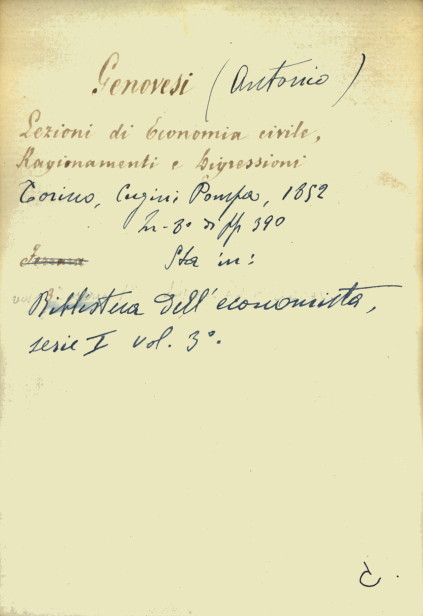 Genovesi (Antonio)
Lezioni di Economia civile,
Ragionamenti e Digressioni
Torino, Cugini Pompa, 1852
In-8° di pp 390
Sta in:
Biblioteca dell'economista,
serie I vol. 3°.